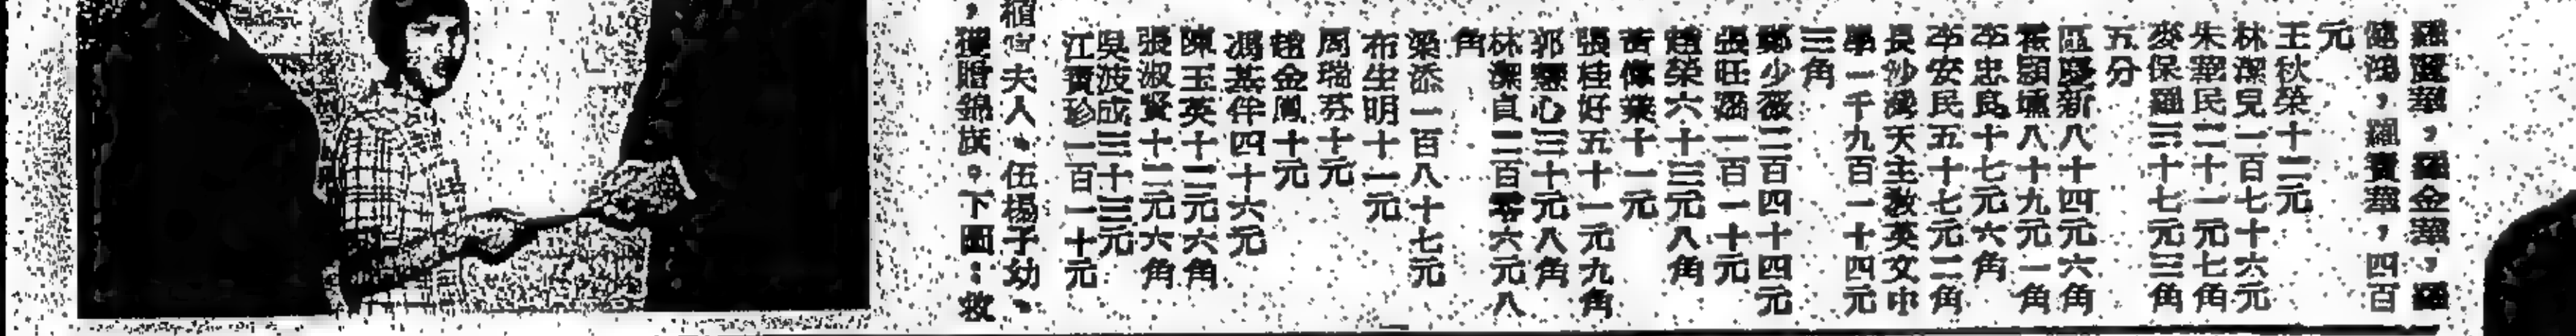 羅麗華，羅金華，羅
健鴻，羅寶華，四百
元
王秋榮十二元
林潔兒一百七十六元
朱華民二十一元七角
麥保羅三十七元三角
五分
區慶新八十四元六角
霍顯壎八十九元一角
李忠良十七元六角
李安民五十七元二角
長沙灣天主教英文中
學一千九百一十四元
三角
鄭少薇二百四十四元
張旺潞一百一十元
趙榮六十三元八角
黃偉業十一元
張桂好五十一元九角
郭慧心三十元八角
林潔貞二百零六元八
角
梁添一百八十七元
布生明十一元
周瑞芬十元
趙金鳳十元
馮基伴四十六元
陳玉英十二元六角
張淑賢十二元六角
吳波成三十三元
江寶珍一百一十元
植宜夫人、伍楊子幼、
獲贈錦旗。下圖：救